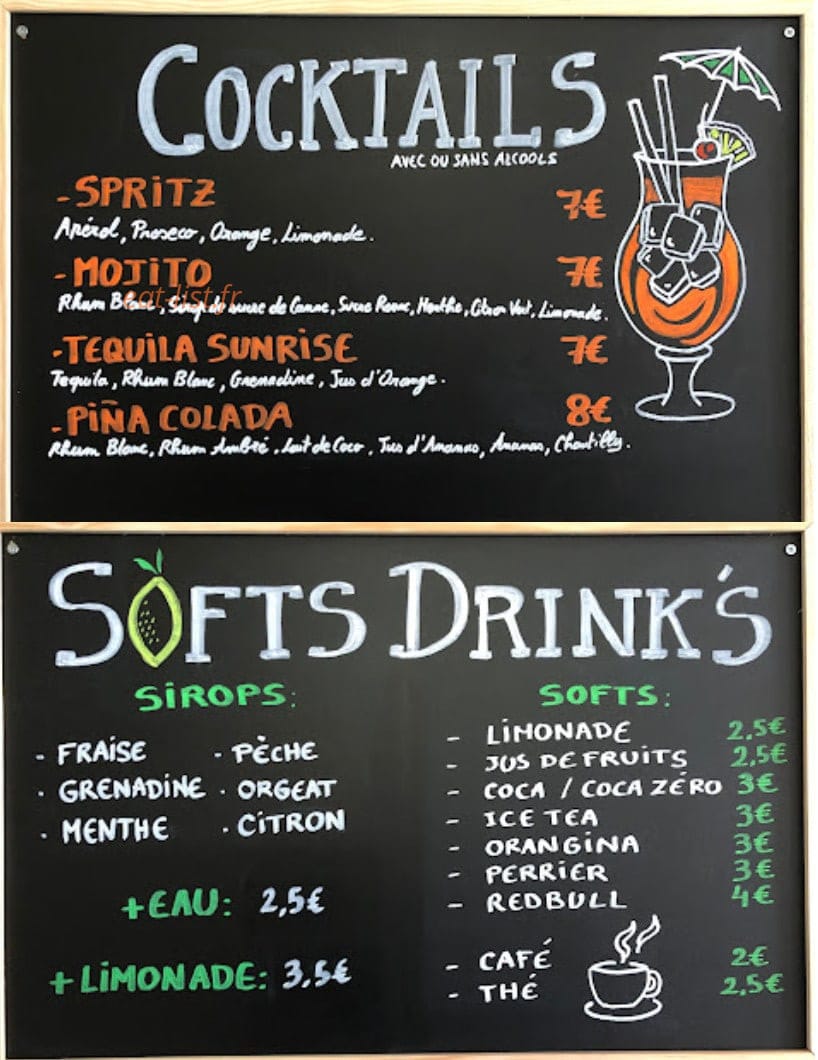 COCKTAILS
AVEC OU SANS ALCOOLS
- SPRITZ 7€
Apérol, Proseco, Orange, Limonade.
- MOJITO 7€
eat-list.fr
Rhum Blanc, Sirop de sucre de Canne, Sucre Roux, Menthe, Citron Vert, Limonade.
- TEQUILA SUNRISE 7€
Tequila, Rhum Blanc, Grenadine, Jus d'Orange.
- PIÑA COLADA 8€
Rhum Blanc, Rhum Ambré, Lait de Coco, Jus d'Ananas, Ananas, Chantilly.
SOFTS DRINK'S
SIROPS:
- FRAISE - PÈCHE
- GRENADINE - ORGEAT
- MENTHE - CITRON
+ EAU: 2,5€
+ LIMONADE: 3,5€
SOFTS:
- LIMONADE 2,5€
- JUS DE FRUITS 2,5€
- COCA / COCA ZÉRO 3€
- ICE TEA 3€
- ORANGINA 3€
- PERRIER 3€
- REDBULL 4€
- CAFÉ 2€
- THÉ 2,5€